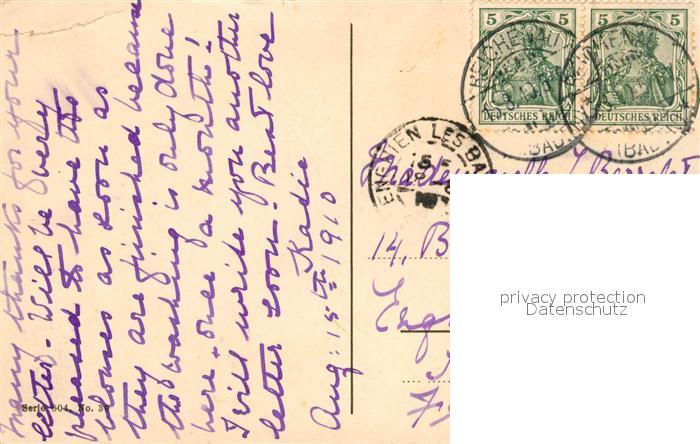 Many thanks for your
letter. Will be very
pleased to have the
blouses as soon as
they are finished because
the washing is only done
here once a month!
I will write you another
letter soon. Best love
Katie
Aug: 15th 1910
Serie 304, No. 3
5 5
5 5
DEUTSCHES REICH
DEUTSCHES REICH
REICHENAU
(BAD
REICHENAU
(BAD
ENGHIEN LES BA
14, B
privacy protection
Datenschutz